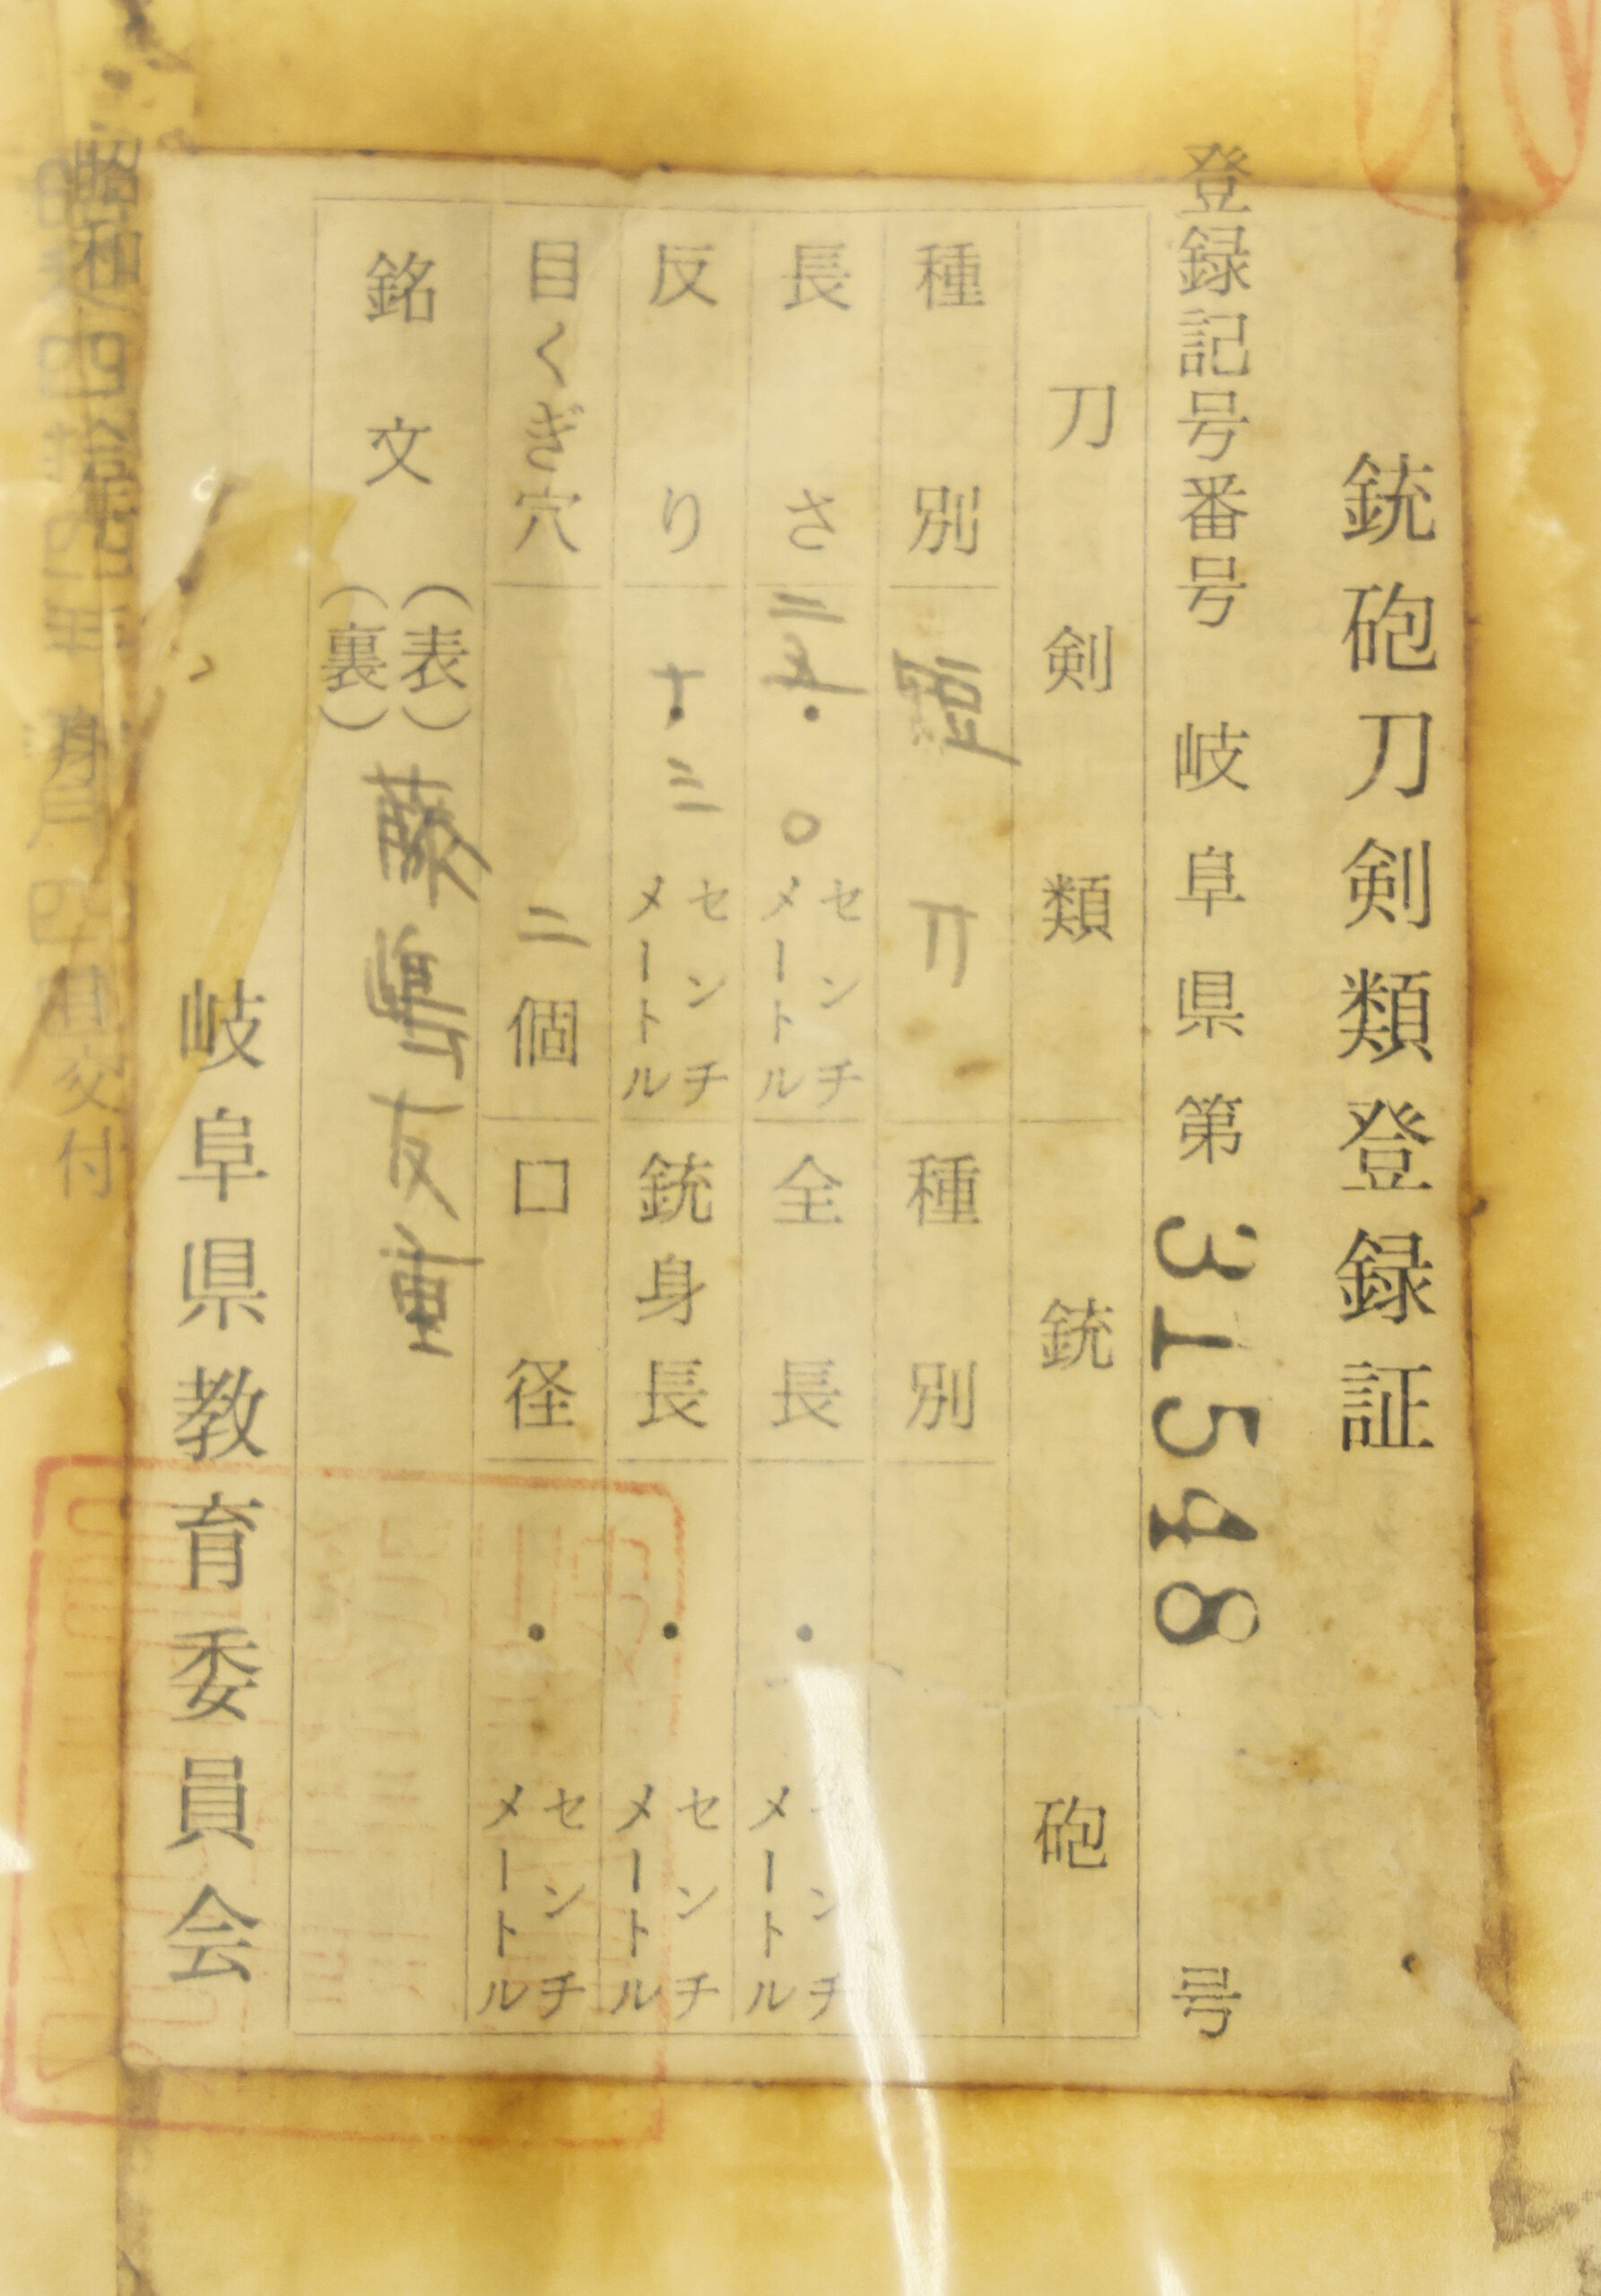 銃砲刀剣類登録証
登録記号番号 岐阜県第31548号
刀剣類 銃砲
種別 短刀 種別
長さ 二五・〇センチメートル 全長 ・センチメートル
反り ・三センチメートル 銃身長 ・センチメートル
目くぎ穴 二個 口径 ・センチメートル
銘文 (表) 藤嶋友重
(裏)
岐阜県教育委員会
昭和 交付